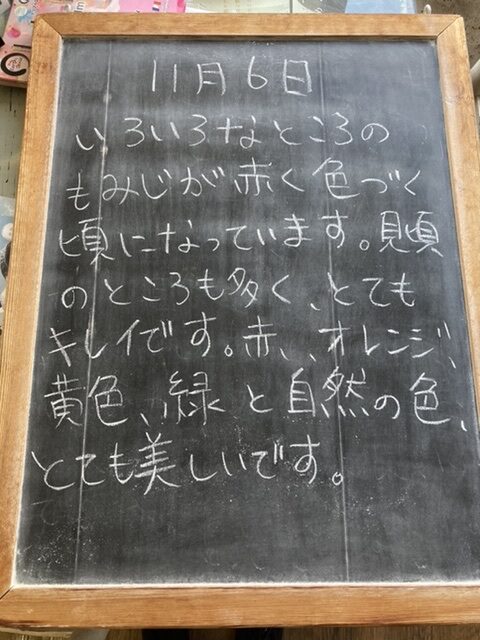 11月6日
いろいろなところの
もみじが赤く色づく
頃になっています。見頃
のところも多く、とても
キレイです。赤、オレンジ、
黄色、緑と自然の色、
とても美しいです。